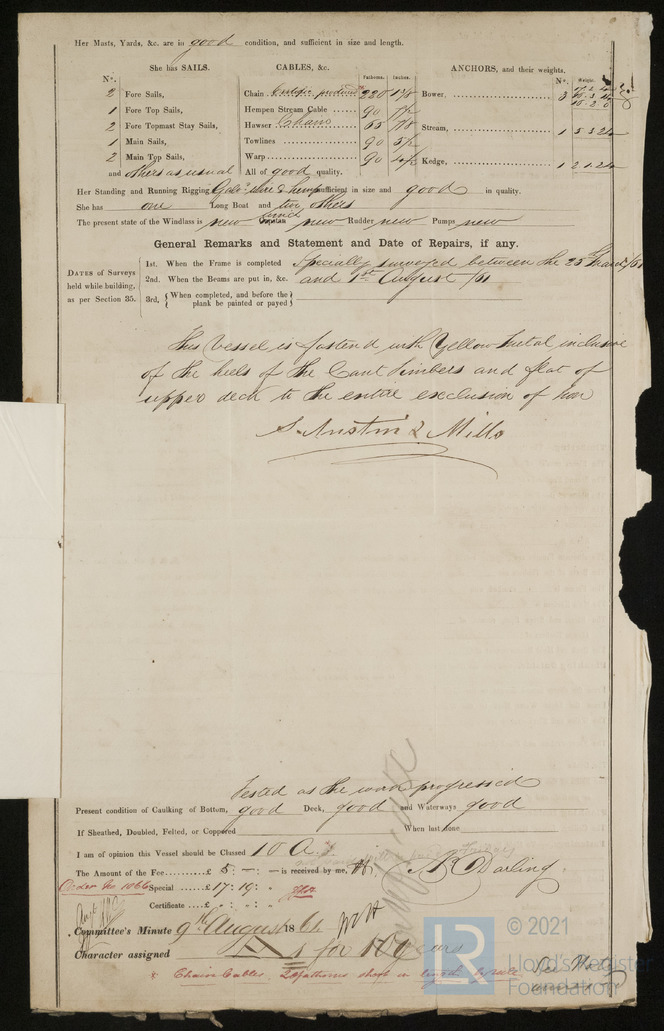 Her Masts, Yards, &c. are in good condition, and sufficient in size and length.
She has SAILS. CABLES, &c. Fathoms. Inches. ANCHORS, and their weights.
N°. N°. Weight.
2 Fore Sails, Chain 220 Bower, 3
1 Fore Top Sails, Hempen Stream Cable 90
2 Fore Topmast Stay Sails, Hawser Chain 65 7/8 Stream, 1
1 Main Sails, Towlines 90
2 Main Top Sails, Warp 90 Kedge, 1
and others as usual All of good quality.
Her Standing and Running Rigging sufficient in size and good in quality.
She has one Long Boat and two others
The present state of the Windlass is new new Rudder new Pumps new
General Remarks and Statement and Date of Repairs, if any.
DATES of Surveys held while building, as per Section 35.
1st. When the Frame is completed Specially surveyed between the 25th /61
2nd. When the Beams are put in, &c. and 1st August /61
3rd. { When completed, and before the plank be painted or payed }
This vessel is fastend with Yellow Metal inclusive
of the heels of the Cant Timbers and flat of
upper deck to the entire exclusion of Iron
S. Austin & Mills
Tested as the work progressed
Present condition of Caulking of Bottom, good Deck, good and Waterways good
If Sheathed, Doubled, Felted, or Coppered When last done
I am of opinion this Vessel should be Classed 10 A
The Amount of the Fee £ 5 : - : - is received by me,
Darling
Special £ 17 : 19 :
Certificate £ : :
Committee's Minute 9th August 1861
Character assigned A 1 for 10 years
Chain Cables. 2 fathoms short in length by rule
© 2021
LR
Lloyd's Register
Foundation